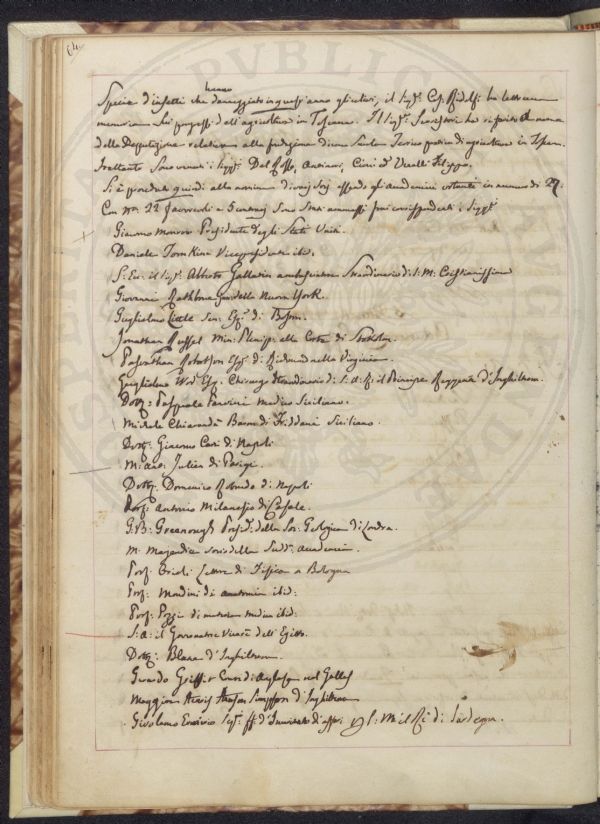 64
hanno
Specie d'insetti che danneggiato in quest'anno gli ulivi, il Sigr. Cos. Ridolfi ha letto una
memoria sui progressi dell'agricoltura in Toscana. Il Sigr. ha riferito a nome
della Deputazione relativa alla di una Scuola Teorico pratica di agricoltura in Toscana.
Frattanto sono venuti i Sigri. Del Rosso, Cioni e Filippo.
Si è proceduto quindi alla nomina di varj Socj essendo gli Accademici votanti in numero di 27.
Con Nro. 22 favorevoli e 5 contrarj sono stati ammessi fra i corrispondenti i Sigri.
Giacomo Monroe Presidente degli Stati Uniti.
Daniele Tomkins Vicepresidente ibid.
S. Ecc. il Sigr. Alberto Gallatin ambasciatore Straordinario di S. M. Cristianissima
Giovanni Rathbone della Nuova York.
Guglielmo Little Sen. Esqr. di Boston.
Jonathan Russel Min. Plenip. alla Corte di Stokolm.
Robertson Esqr. di Richmond nella Virginia.
Guglielmo Wod Esq. Chirurgo Straordinario di S. A. R. il Principe Reggente d'Inghilterra.
Dottr. Pasquale Panvini medico Siciliano.
Michele Chiarandà Barone di Friddani Siciliano.
Dottr. Giacomo di Napoli
M. Julien di Parigi.
Dottr. Domenico di Napoli
Prof. Antonio Milanesio di Casale.
G. B. Greenough Presid. della Soc. Geologica di Londra.
M. Magendie socio della Sudd. Accademia.
Prof. Orioli Lettore di Fisica a Bologna
Prof. Mondini di anatomia ibid:
Prof. Pozzi di materia medica ibid:
S. A. il Governatore Viceré dell'Egitto.
Dottr. Blane d'Inghilterra
Griffit nel Galles
Maggiore Simpson d'Inghilterra
Girolamo Enrico Sigr. d'Incaricato di affari di S. M. il Re di Sardegna.